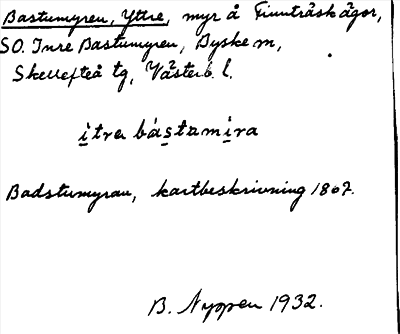 Bastumyren, Yttre, myr å Finnträsk ägor,
SO. Inre Bastumyren, Byske sn,
Skellefteå tg, Västerb. l.
i̲tra bás̲tami̲ra
Badstumyran, kartbeskrivning 1807.
B. Nyppen 1932.